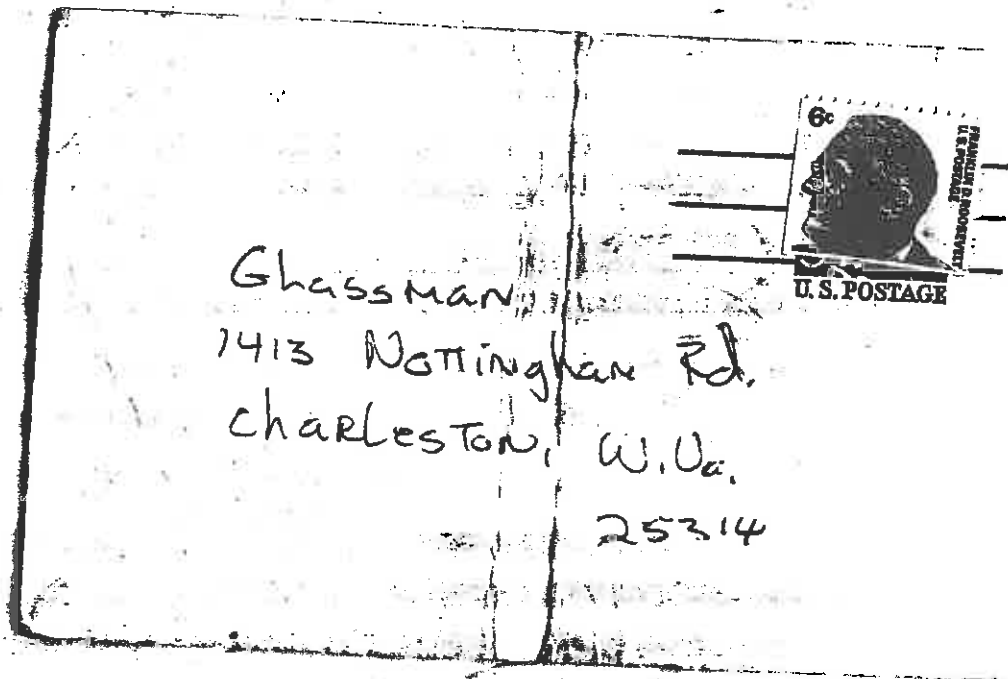 6c
FRANKLIN D. ROOSEVELT
U.S. POSTAGE
U. S. POSTAGE
Ghassman,
1413 Nottingham Rd.
Charleston, W. Va.
25314